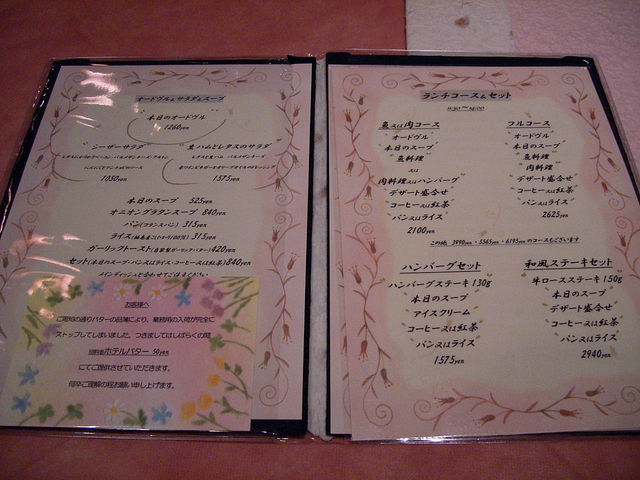 オードヴル&サラダ&スープ
本日のオードヴル
1260yen
シーザーサラダ
1050yen
生ハムとレタスのサラダ
1575yen
本日のスープ 525yen
オニオングラタンスープ 840yen
パン(フランスパン) 315yen
ライス 315yen
ガーリックトースト(自家製ガーリックバター)420yen
セット(本日のスープ・パン又はライス・コーヒー又は紅茶)840yen
メインディッシュと合わせてごさいませ
お客様へ
ご周知の通りバターの品薄により、業務用の入荷が完全に
ストップしてしまいました。つきましてはしばらくの間
ホテルバター 50yen
にてご提供させていただきます。
何卒ご理解の程お願い申し上げます。
ランチコース&セット
11:30〜14:00
魚又は肉コース
オードヴル
本日のスープ
魚料理
又は
肉料理又はハンバーグ
デザート盛合せ
コーヒー又は紅茶
パン又はライス
2100yen
フルコース
オードヴル
本日のスープ
魚料理
肉料理
デザート盛合せ
コーヒー又は紅茶
パン又はライス
2625yen
この他 3990yen・5565yen・6195yen のコースもございます
ハンバーグセット
ハンバーグステーキ 130g
本日のスープ
アイスクリーム
コーヒー又は紅茶
パン又はライス
1575yen
和風ステーキセット
牛ロースステーキ 150g
本日のスープ
デザート盛合せ
コーヒー又は紅茶
パン又はライス
2940yen